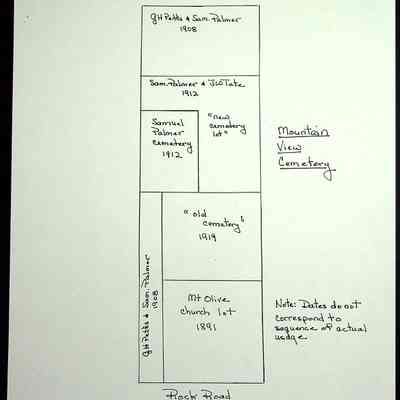 GH Petts & Sam. Palmer
1908
Sam. Palmer & Jso Tate
1912
Samuel
Palmer
Cemetery
1912
"new
cemetery
lot"
Mountain
View
Cemetery
"old
cemetery"
1919
GH Petts & Sam. Palmer
1908
Mt Olive
church lot
1891
Note: Dates do not
correspond to
sequence of actual
usage.
Rock Road